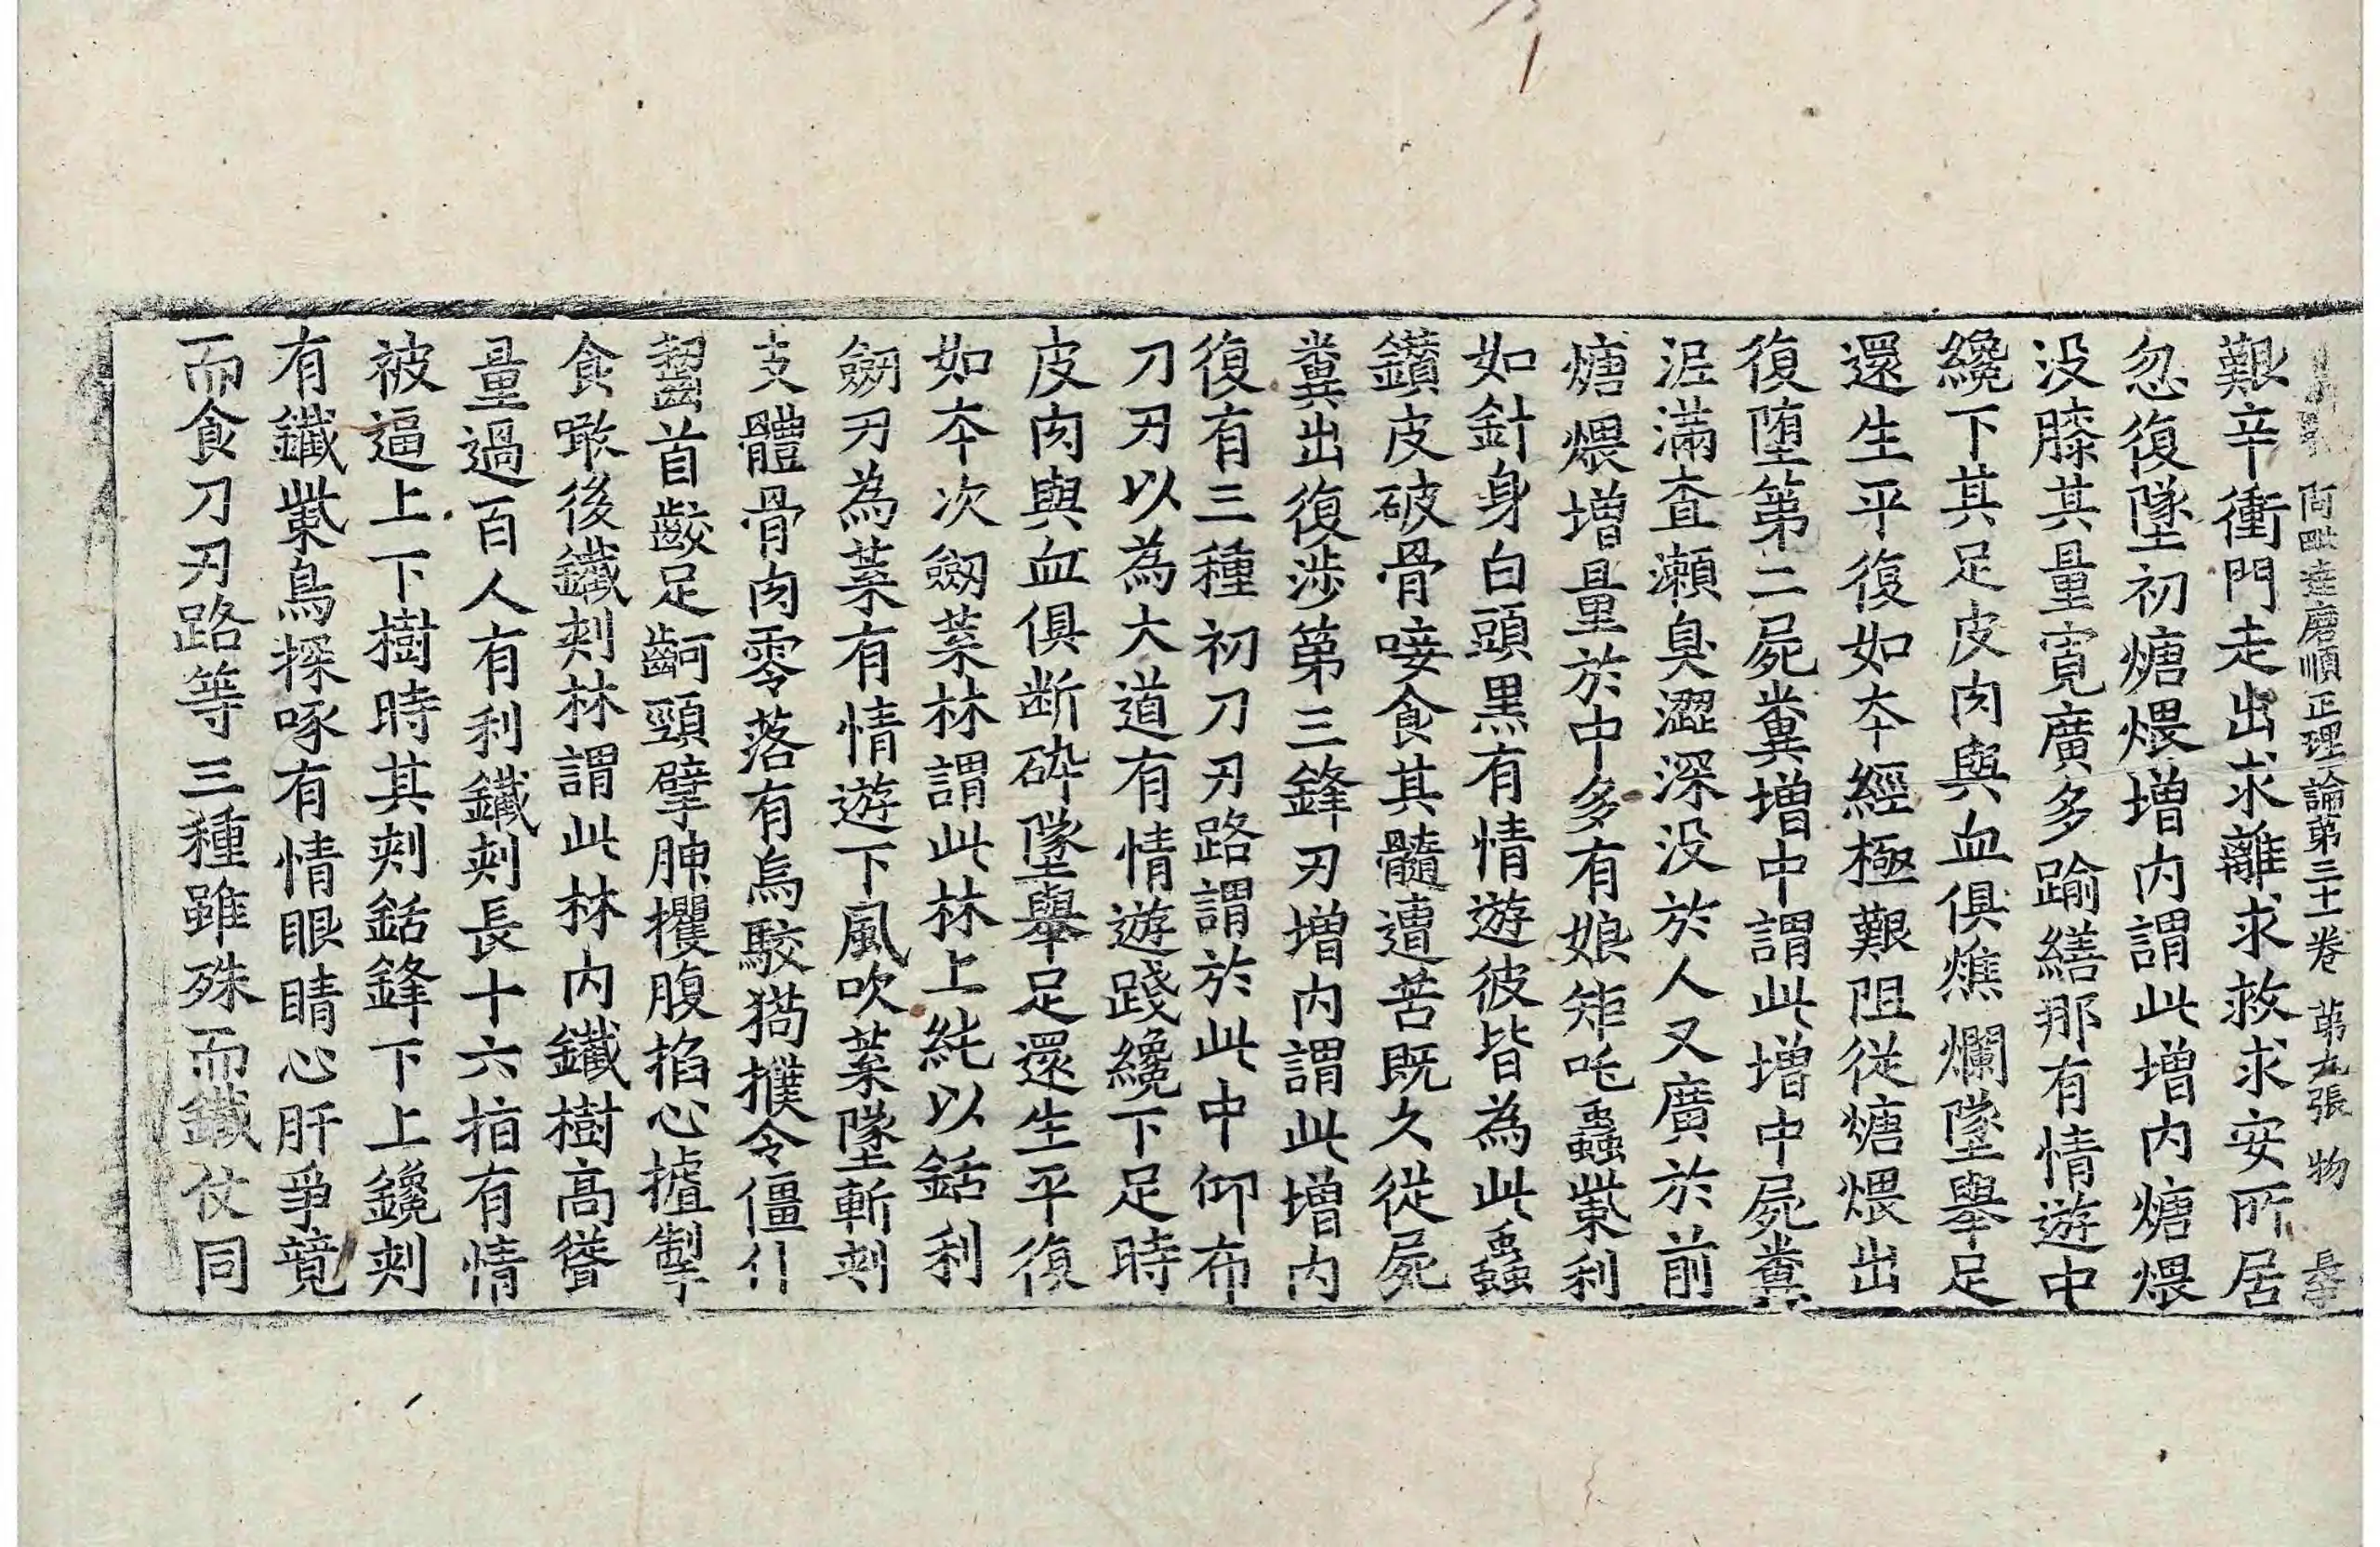 阿毗達磨順正理論第三十一卷 第九張 物
艱辛衝門走出求離求救求安所居
忽復墜初煻煨增內謂此增內煻煨
没膝其量寬廣多踰繕那有情遊中
纔下其足皮肉與血俱燋爛墜舉足
還生平復如本經極艱阻從煻煨出
復墮第二屍糞增中謂此增中屍糞
泥滿查瀨臭澀深没於人又廣於前
煻煨增量於中多有娘矩吒蟲𭉨利
如針身白頭黑有情遊彼皆為此蟲
鑽皮破骨唼食其髓遭苦既久從屍
糞出復涉第三鋒刃增內謂此增內
復有三種初刀刃路謂於此中仰布
刀刃以為大道有情遊踐纔下足時
皮肉與血俱斷碎墜舉足還生平復
如本次劒葉林謂此林上純以銛利
劒刃為葉有情遊下風吹葉墜斬刺
支體骨肉零落有烏駮猲摣令僵仆
齧首齩足齖頸擘胂攫腹掐心摣掣
食噉後鐵刺林謂此林內鐵樹高聳
量過百人有利鐵刺長十六指有情
被逼上下樹時其刺銛鋒下上鑱刺
有鐵𭉨鳥探啄有情眼睛心肝爭競
而食刀刃路等三種雖殊而鐵仗同